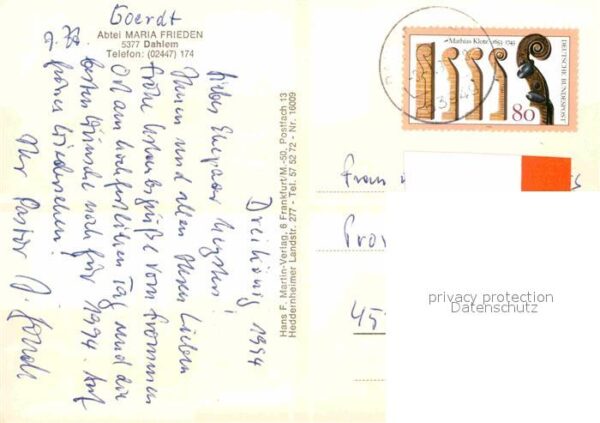 Goerdt
Abtei MARIA FRIEDEN
5377 Dahlem
Telefon: (02447) 174
z. Zt.
Dreikönig 1994
Liebes Ehepaar
Ihnen und allen Ihren Lieben
frohe Urlaubsgrüße vom frommen
Ort am hochfestlichen Tag und die
besten Wünsche noch für 1994. Auf
frohes Wiedersehen!
Ihr Pastor
Hans F. Martin-Verlag, 6 Frankfurt/M.-50, Postfach 13
Heddernheimer Landstr. 277 - Tel. 57 52 72 - Nr. 16009
Mathias Klotz 1653-1743
80
DEUTSCHE BUNDESPOST
privacy protection
Datenschutz